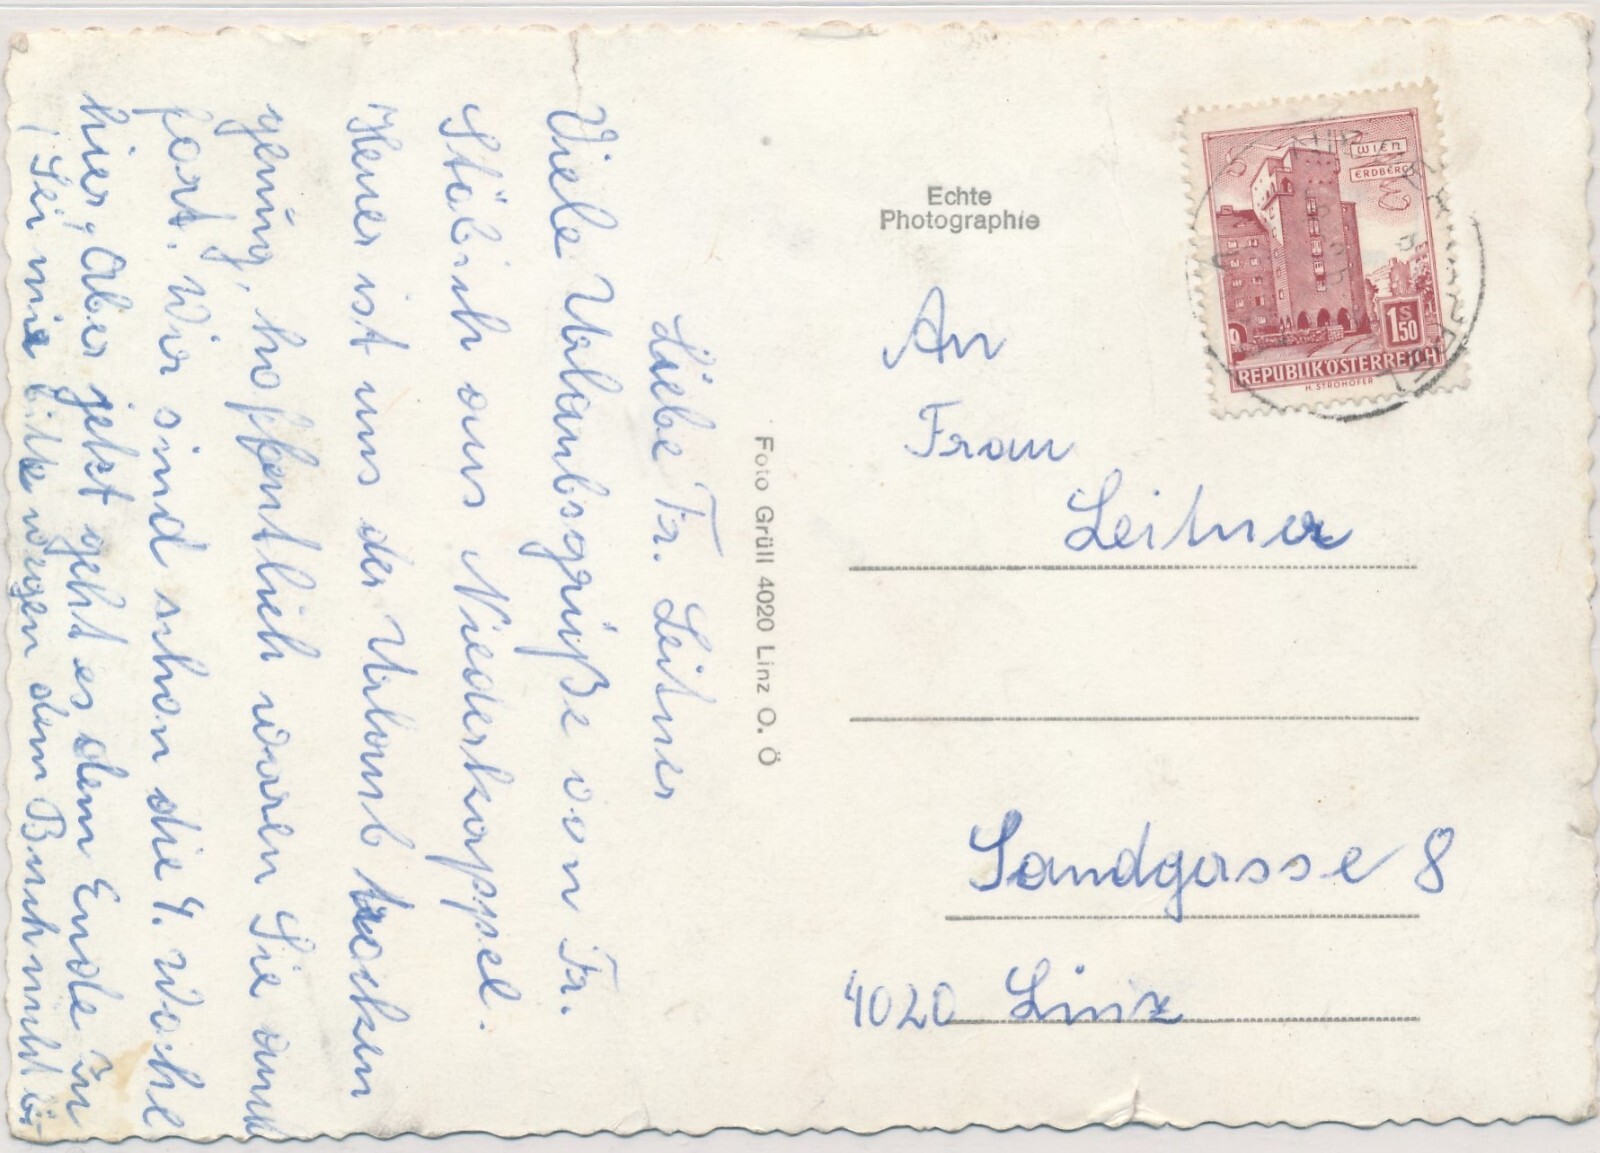 Liebe Fr. Leitner
Viele Urlaubsgrüße von Fr.
Stöbich aus Niederkappel.
Heuer ist uns der Urlaub trocken
genug, hoffentlich waren Sie auch
fort. Wir sind schon die 4. Woche
hier, aber jetzt geht es dem Ende zu
Sei mir bitte wegen dem Buch nicht
Foto Grüll 4020 Linz O. Ö
Echte
Photographie
WIEN
ERDBERG
1 S 50
REPUBLIK ÖSTERREICH
H. STROHOFER
An
Frau
Leitner
Sandgasse 8
4020 Linz